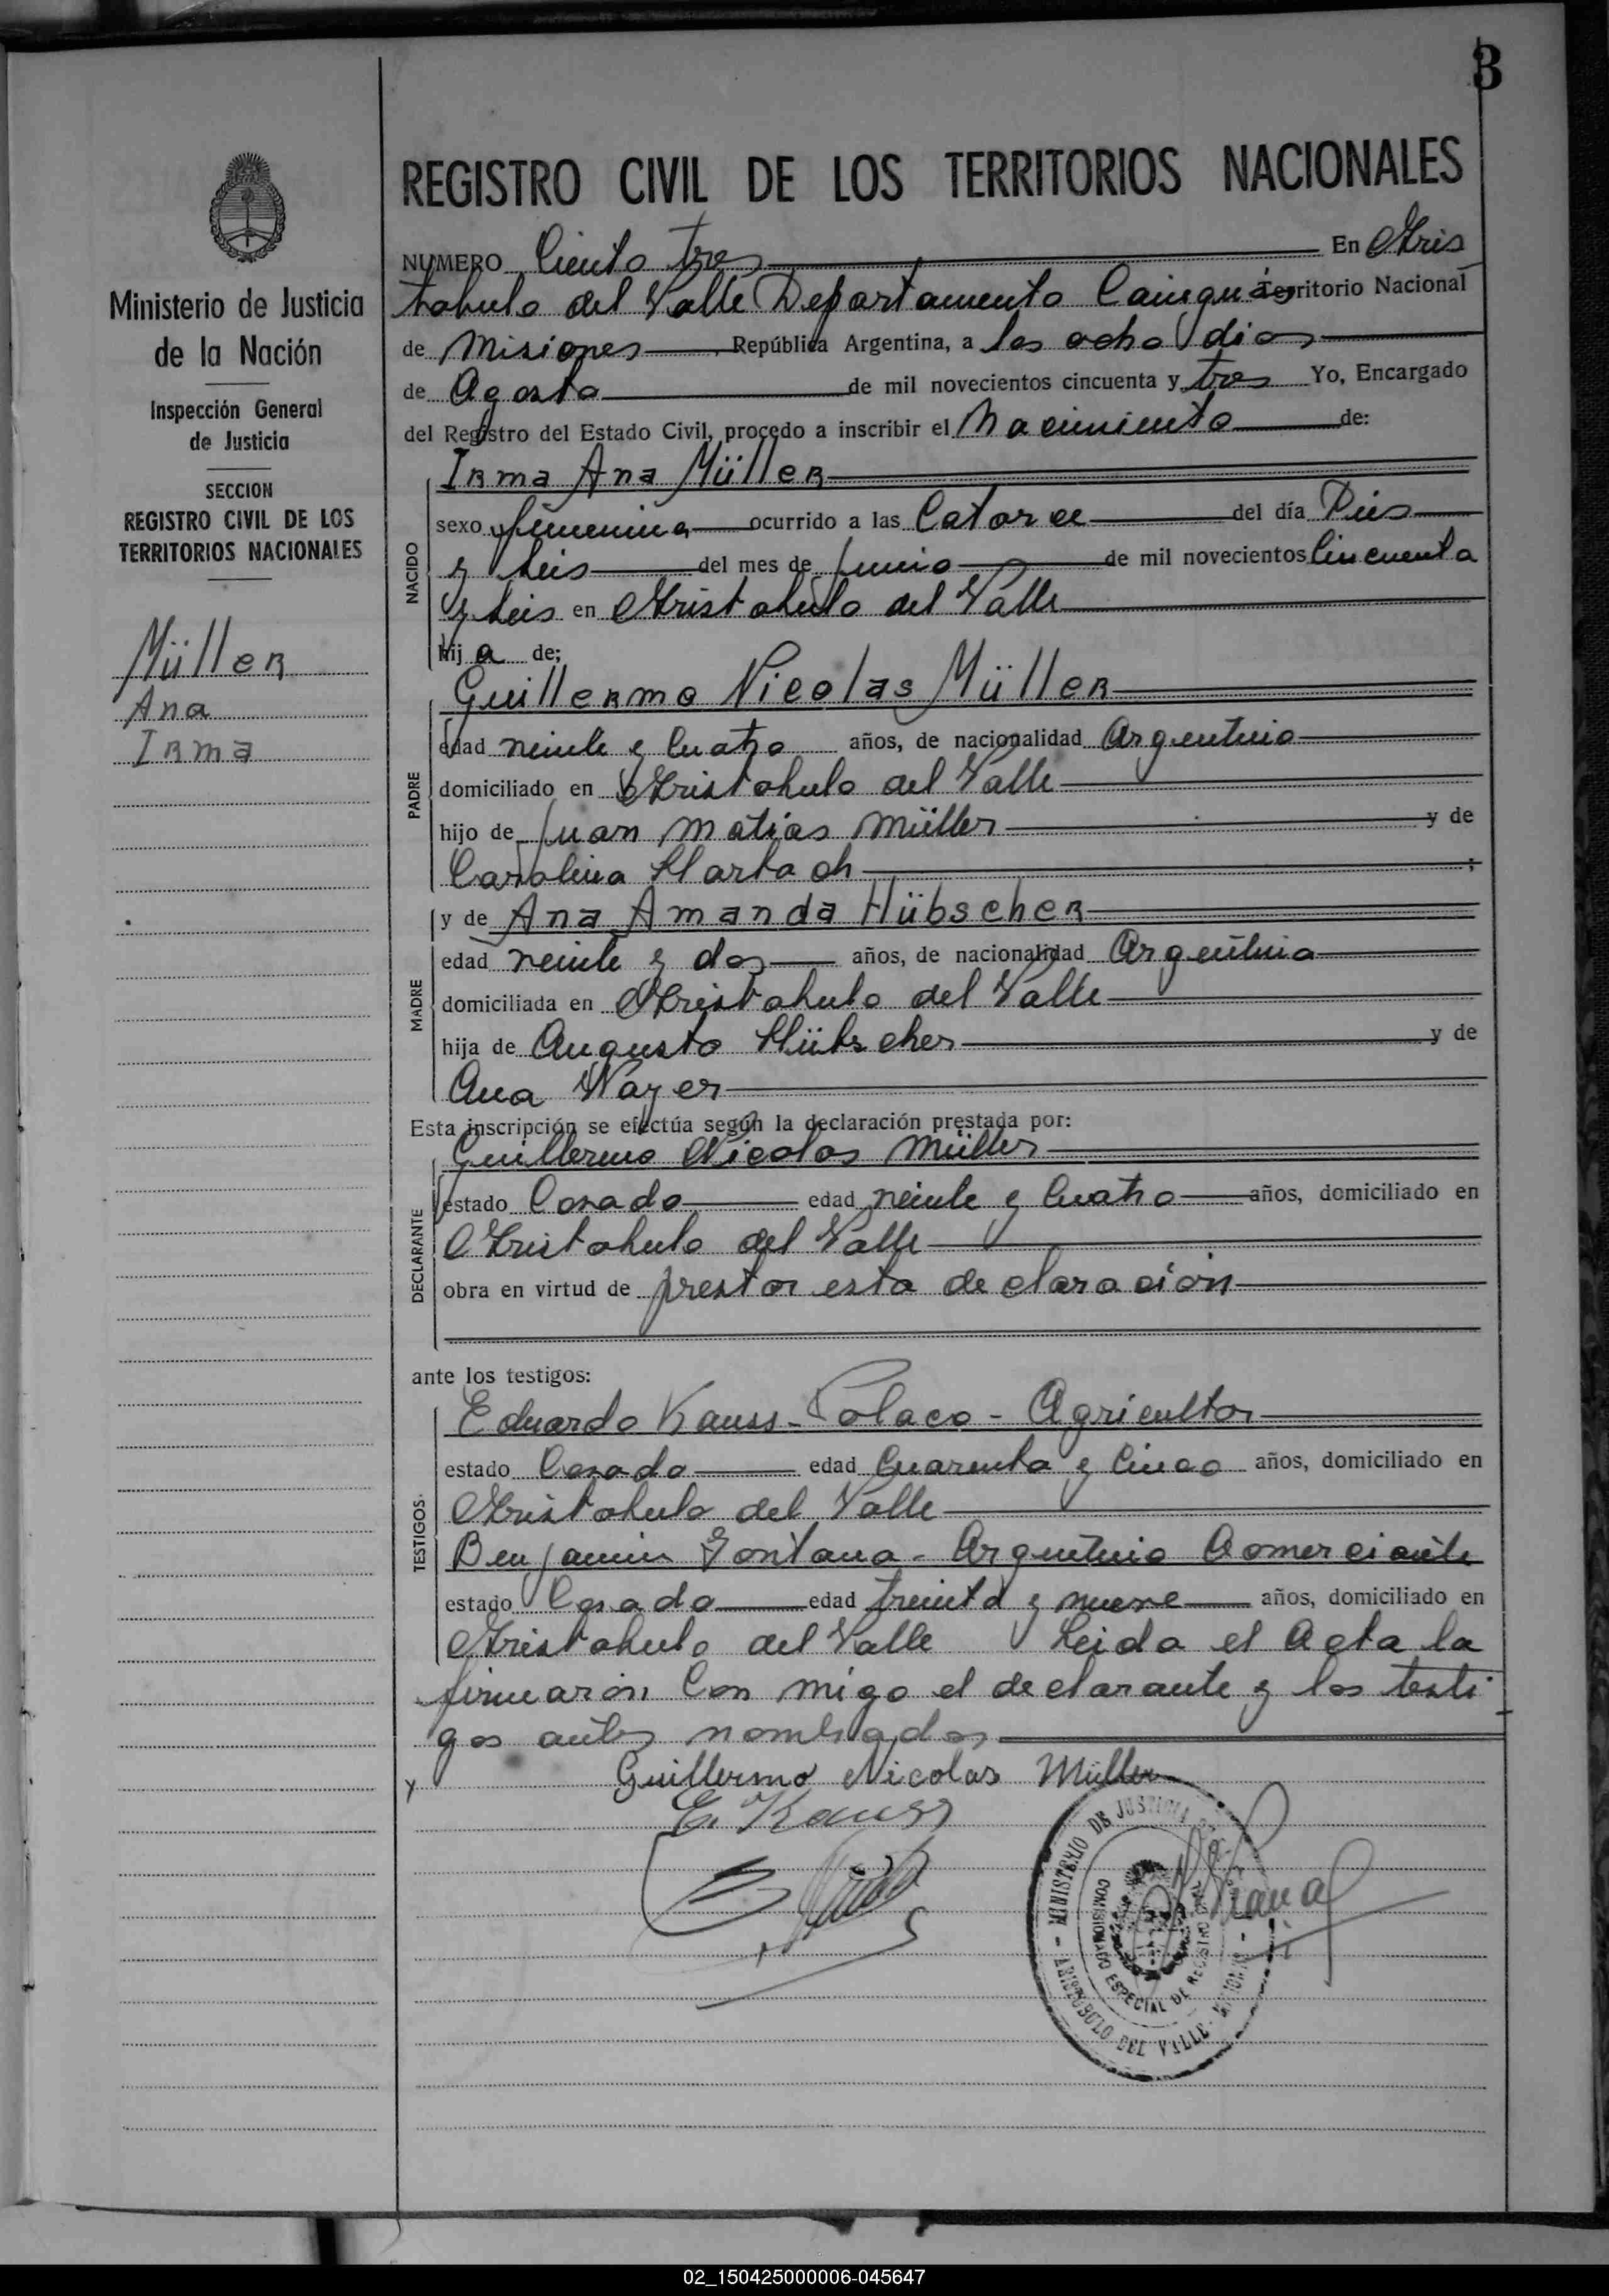 3
REGISTRO CIVIL DE LOS TERRITORIOS NACIONALES
Ministerio de Justicia
de la Nación
Inspección General
de Justicia
SECCION
REGISTRO CIVIL DE LOS
TERRITORIOS NACIONALES
Müller
Ana
Irma
NUMERO Ciento tres En Aris
tobulo del Valle Departamento Cainguás Territorio Nacional
de Misiones, República Argentina, a los ocho dias
de Agosto de mil novecientos cincuenta y tres Yo, Encargado
del Registro del Estado Civil, procedo a inscribir el Nacimiento de:
NACIDO
Irma Ana Müller
sexo femenina ocurrido a las Catorce del día Dies
y seis del mes de Junio de mil novecientos Cincuenta
y seis en Aristobulo del Valle
hij a de;
PADRE
Guillermo Nicolas Müller
edad veinte y Cuatro años, de nacionalidad Argentino
domiciliado en Aristobulo del Valle
hijo de Juan Matias Müller y de
Carolina Hartach ;
MADRE
y de Ana Amanda Hübscher
edad veinte y dos años, de nacionalidad Argentina
domiciliada en Aristobulo del Valle
hija de Augusto Hübscher y de
Ana Wayer
Esta inscripción se efectúa según la declaración prestada por:
DECLARANTE
Guillermo Nicolas Müller
estado Casado edad veinte y Cuatro años, domiciliado en
Aristobulo del Valle
obra en virtud de prestar esta declaracion
ante los testigos:
TESTIGOS.
Eduardo Kauss - Polaco - Agricultor
estado Casado edad Cuarenta y Cinco años, domiciliado en
Aristobulo del Valle
Benjamin Fontana - Argentino Comerciante
estado Casado edad treinta y nueve años, domiciliado en
Aristobulo del Valle Leida el Acta la
firmaron Con migo el declarante y los testi
gos antes nombrados
Guillermo Nicolas Müller
E. Kauss
MINISTERIO DE JUSTICIA
COMISIONADO ESPECIAL DE REGISTRO CIVIL
ARISTOBULO DEL VALLE - MISIONES
02_150425000006-045647